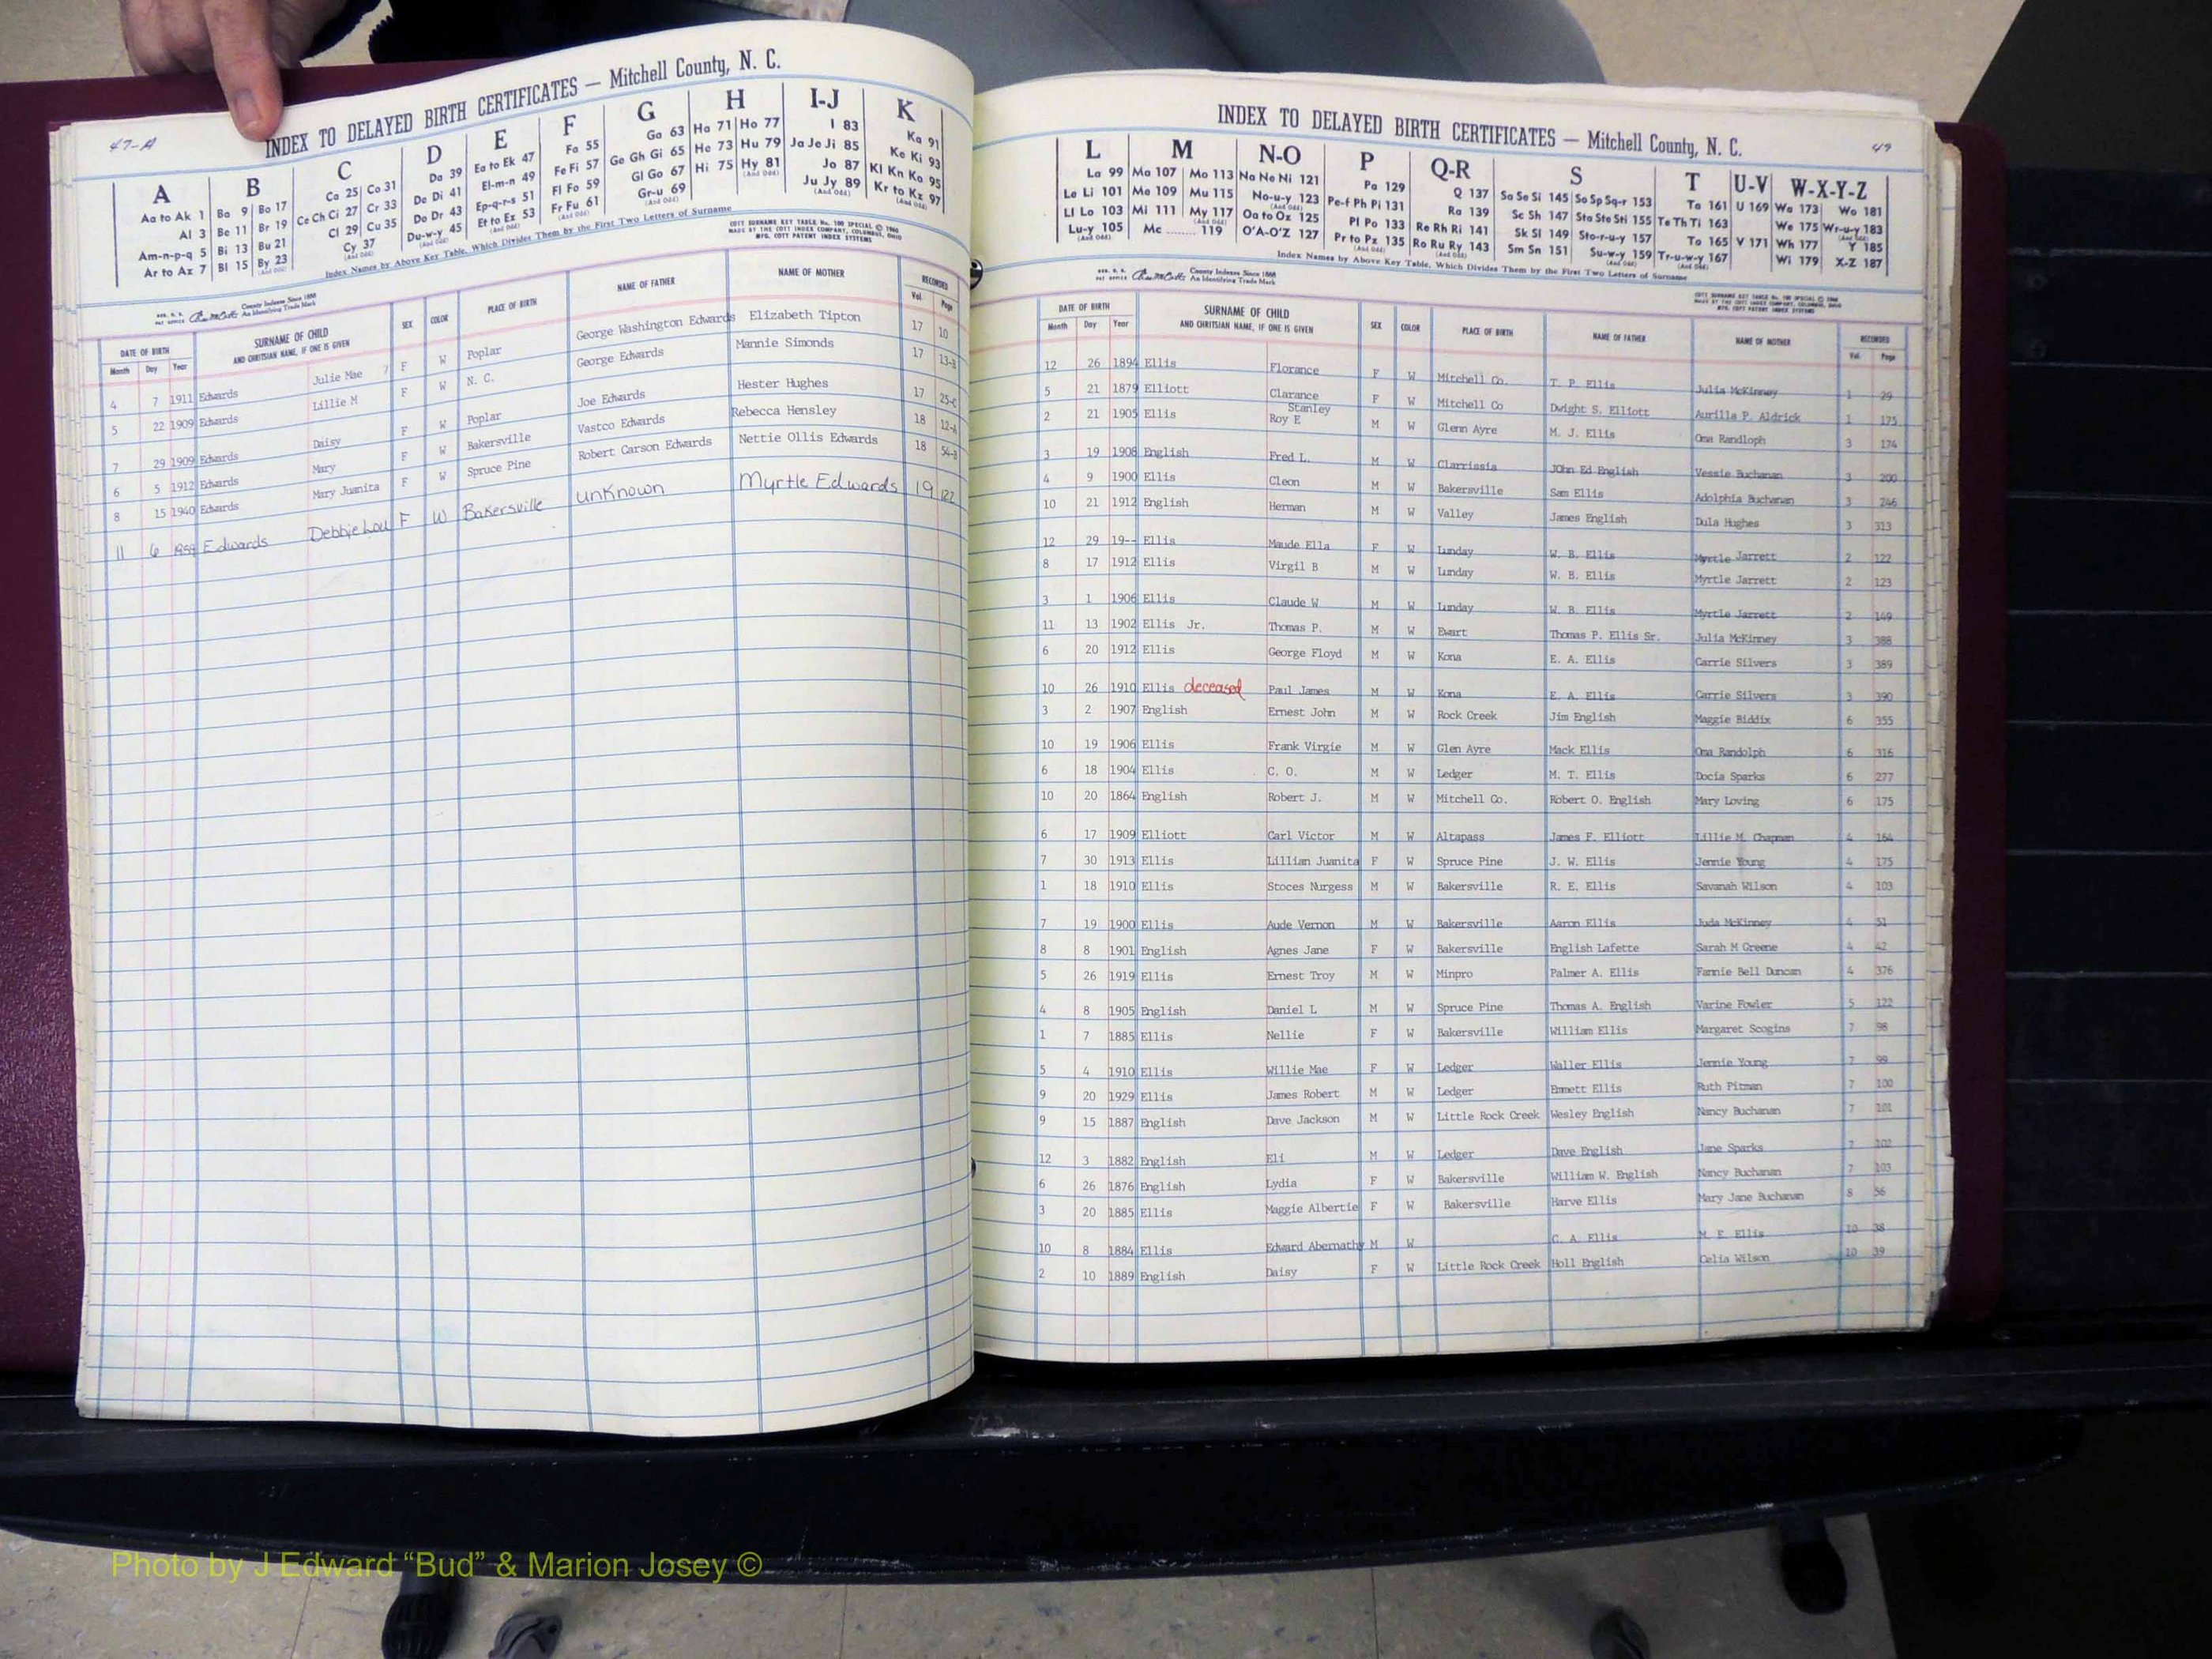 47-A
INDEX TO DELAYED BIRTH CERTIFICATES — Mitchell County, N. C.
A B C D E F G H I-J K
Aa to Ak 1 Ba 9 Bo 17 Ca 25 Co 31 Da 39 Ea to Ek 47 Fa 55 Ga 63 Ha 71 Ho 77 I 83 Ka 91
Al 3 Be 11 Br 19 Ce Ch Ci 27 Cr 33 De Di 41 El-m-n 49 Fe Fi 57 Ge Gh Gi 65 He 73 Hu 79 Ja Je Ji 85 Ke Ki 93
Am-n-p-q 5 Bi 13 Bu 21 Cl 29 Cu 35 Do Dr 43 Ep-q-r-s 51 Fl Fo 59 Gl Go 67 Hi 75 Hy 81 Jo 87 Kl Kn Ko 95
Ar to Az 7 Bl 15 By 23 Cy 37 Du-w-y 45 Et to Ez 53 Fr Fu 61 Gr-u 69 Ju Jy 89 Kr to Kz 97
Index Names by Above Key Table, Which Divides Them by the First Two Letters of Surname
COTT SURNAME KEY TABLE No. 100 SPECIAL © 1960
MADE BY THE COTT INDEX COMPANY, COLUMBUS, OHIO
MFG. COTT PATENT INDEX SYSTEMS
County Indexes Since 1888
An Identifying Trade Mark
DATE OF BIRTH SURNAME OF CHILD SEX COLOR PLACE OF BIRTH NAME OF FATHER NAME OF MOTHER RECORDED
Month Day Year AND CHRITSIAN NAME, IF ONE IS GIVEN Vol. Page
4 7 1911 Edwards Julie Mae F W Poplar George Washington Edwards Elizabeth Tipton 17 10
5 22 1909 Edwards Lillie M F W N. C. George Edwards Mannie Simonds 17 13-B
7 29 1909 Edwards Daisy F W Poplar Joe Edwards Hester Hughes 17 25-C
6 5 1912 Edwards Mary F W Bakersville Vastco Edwards Rebecca Hensley 18 12-A
8 15 1940 Edwards Mary Juanita F W Spruce Pine Robert Carson Edwards Nettie Ollis Edwards 18 54-B
11 6 Edwards Debbie Lou F W Bakersville unknown Myrtle Edwards 19 122
49
INDEX TO DELAYED BIRTH CERTIFICATES — Mitchell County, N. C.
L M N-O P Q-R S T U-V W-X-Y-Z
La 99 Ma 107 Mo 113 Na Ne Ni 121 Pa 129 Q 137 Sa Se Si 145 So Sp Sq-r 153 Ta 161 U 169 Wa 173 Wo 181
Le Li 101 Me 109 Mu 115 No-u-y 123 Pe-f Ph Pi 131 Ra 139 Sc Sh 147 Sta Ste Sti 155 Te Th Ti 163 We 175 Wr-u-y 183
Ll Lo 103 Mi 111 My 117 Oa to Oz 125 Pl Po 133 Re Rh Ri 141 Sk Sl 149 Sto-r-u-y 157 To 165 V 171 Wh 177 Y 185
Lu-y 105 Mc ........ 119 O'A-O'Z 127 Pr to Pz 135 Ro Ru Ry 143 Sm Sn 151 Su-w-y 159 Tr-u-w-y 167 Wi 179 X-Z 187
Index Names by Above Key Table, Which Divides Them by the First Two Letters of Surname
County Indexes Since 1888
An Identifying Trade Mark
DATE OF BIRTH SURNAME OF CHILD SEX COLOR PLACE OF BIRTH NAME OF FATHER NAME OF MOTHER RECORDED
Month Day Year AND CHRITSIAN NAME, IF ONE IS GIVEN Vol. Page
12 26 1894 Ellis Florance F W Mitchell Co. T. P. Ellis Julia McKinney 1 29
5 21 1879 Elliott Clarance Stanley F W Mitchell Co Dwight S. Elliott Aurilla P. Aldrick 1 175
2 21 1905 Ellis Roy E M W Glenn Ayre M. J. Ellis Oma Randloph 3 174
3 19 1908 English Fred L. M W Clarrissia JOhn Ed English Vessie Buchanan 3 200
4 9 1900 Ellis Cleon M W Bakersville Sam Ellis Adolphia Buchanan 3 246
10 21 1912 English Herman M W Valley James English Dula Hughes 3 313
12 29 19-- Ellis Maude Ella F W Lunday W. B. Ellis Myrtle Jarrett 2 122
8 17 1912 Ellis Virgil B M W Lunday W. B. Ellis Myrtle Jarrett 2 123
3 1 1906 Ellis Claude W M W Lunday W. B. Ellis Myrtle Jarrett 2 149
11 13 1902 Ellis Jr. Thomas P. M W Ewart Thomas P. Ellis Sr. Julia McKinney 3 388
6 20 1912 Ellis George Floyd M W Kona E. A. Ellis Carrie Silvers 3 389
10 26 1910 Ellis deceased Paul James M W Kona E. A. Ellis Carrie Silvers 3 390
3 2 1907 English Ernest John M W Rock Creek Jim English Maggie Biddix 6 355
10 19 1906 Ellis Frank Virgie M W Glen Ayre Mack Ellis Oma Randolph 6 316
6 18 1904 Ellis C. O. M W Ledger M. T. Ellis Docia Sparks 6 277
10 20 1864 English Robert J. M W Mitchell Co. Robert O. English Mary Loving 6 175
6 17 1909 Elliott Carl Victor M W Altapass James F. Elliott Lillie M. Chapman 4 164
7 30 1913 Ellis Lillian Juanita F W Spruce Pine J. W. Ellis Jennie Young 4 175
1 18 1910 Ellis Stoces Nurgess M W Bakersville R. E. Ellis Savanah Wilson 4 103
7 19 1900 Ellis Aude Vernon M W Bakersville Aaron Ellis Juda McKinney 4 51
8 8 1901 English Agnes Jane F W Bakersville English Lafette Sarah M Greene 4 42
5 26 1919 Ellis Ernest Troy M W Minpro Palmer A. Ellis Fannie Bell Duncan 4 376
4 8 1905 English Daniel L M W Spruce Pine Thomas A. English Varine Fowler 5 122
1 7 1885 Ellis Nellie F W Bakersville William Ellis Margaret Scogins 7 98
5 4 1910 Ellis Willie Mae F W Ledger Waller Ellis Jennie Young 7 99
9 20 1929 Ellis James Robert M W Ledger Emmett Ellis Ruth Pitman 7 100
9 15 1887 English Dave Jackson M W Little Rock Creek Wesley English Nancy Buchanan 7 101
12 3 1882 English Eli M W Ledger Dave English Jane Sparks 7 102
6 26 1876 English Lydia F W Bakersville William W. English Nancy Buchanan 7 103
3 20 1885 Ellis Maggie Albertie F W Bakersville Harve Ellis Mary Jane Buchanan 8 56
10 8 1884 Ellis Edward Abernathy M W C. A. Ellis M. E. Ellis 10 38
2 10 1889 English Daisy F W Little Rock Creek Holl English Celia Wilson 10 39
Photo by J Edward “Bud” & Marion Josey ©